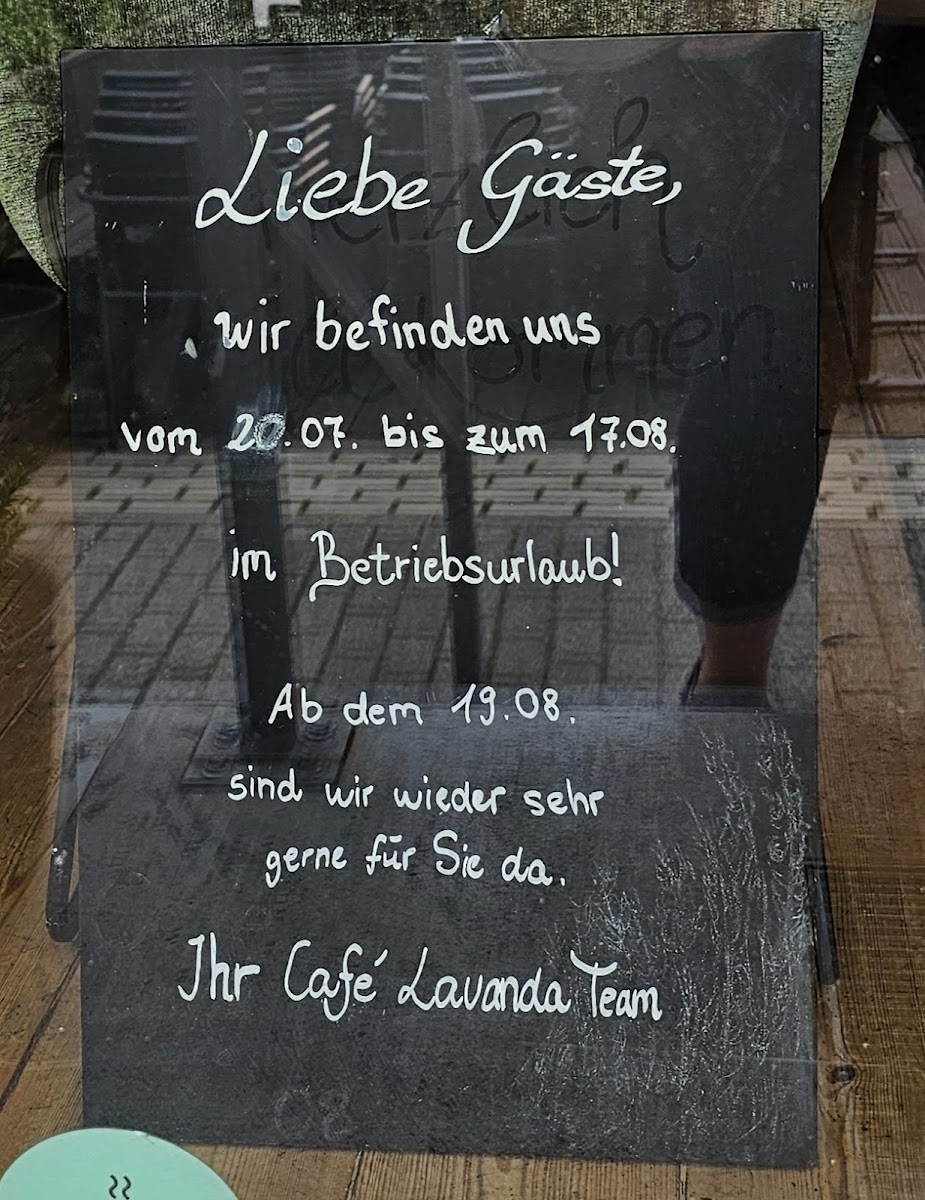 Liebe Gäste,
wir befinden uns
vom 20.07. bis zum 17.08.
im Betriebsurlaub!
Ab dem 19.08.
sind wir wieder sehr
gerne für Sie da.
Ihr Café Lavanda Team